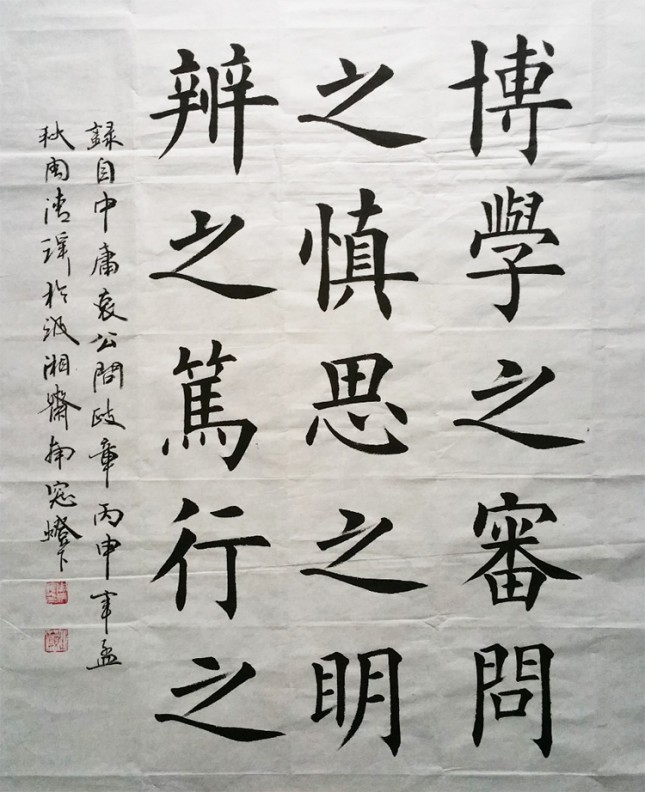 博學之審問
之慎思之明
辨之篤行之
錄自中庸哀公問政章丙申年孟
秋周清瑋於汲湘齋南窓燈下